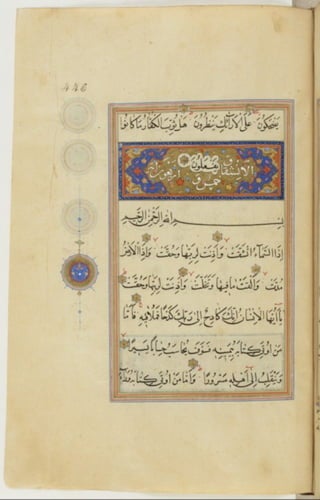 يَضْحَكُونَ عَلَى الْأَرَائِكِ يَنْظُرُونَ هَلْ ثُوِّبَ الْكُفَّارُ مَا كَانُوا
الانشقاق يَفْعَلُونَ
بِسْمِ اللَّهِ الرَّحْمَٰنِ الرَّحِيمِ
إِذَا السَّمَاءُ انْشَقَّتْ وَأَذِنَتْ لِرَبِّهَا وَحُقَّتْ وَإِذَا الْأَرْضُ
مُدَّتْ وَأَلْقَتْ مَا فِيهَا وَتَخَلَّتْ وَأَذِنَتْ لِرَبِّهَا وَحُقَّتْ
يَا أَيُّهَا الْإِنْسَانُ إِنَّكَ كَادِحٌ إِلَىٰ رَبِّكَ كَدْحًا فَمُلَاقِيهِ فَأَمَّا
مَنْ أُوتِيَ كِتَابَهُ بِيَمِينِهِ فَسَوْفَ يُحَاسَبُ حِسَابًا يَسِيرًا
وَيَنْقَلِبُ إِلَىٰ أَهْلِهِ مَسْرُورًا وَأَمَّا مَنْ أُوتِيَ كِتَابَهُ وَرَاءَ